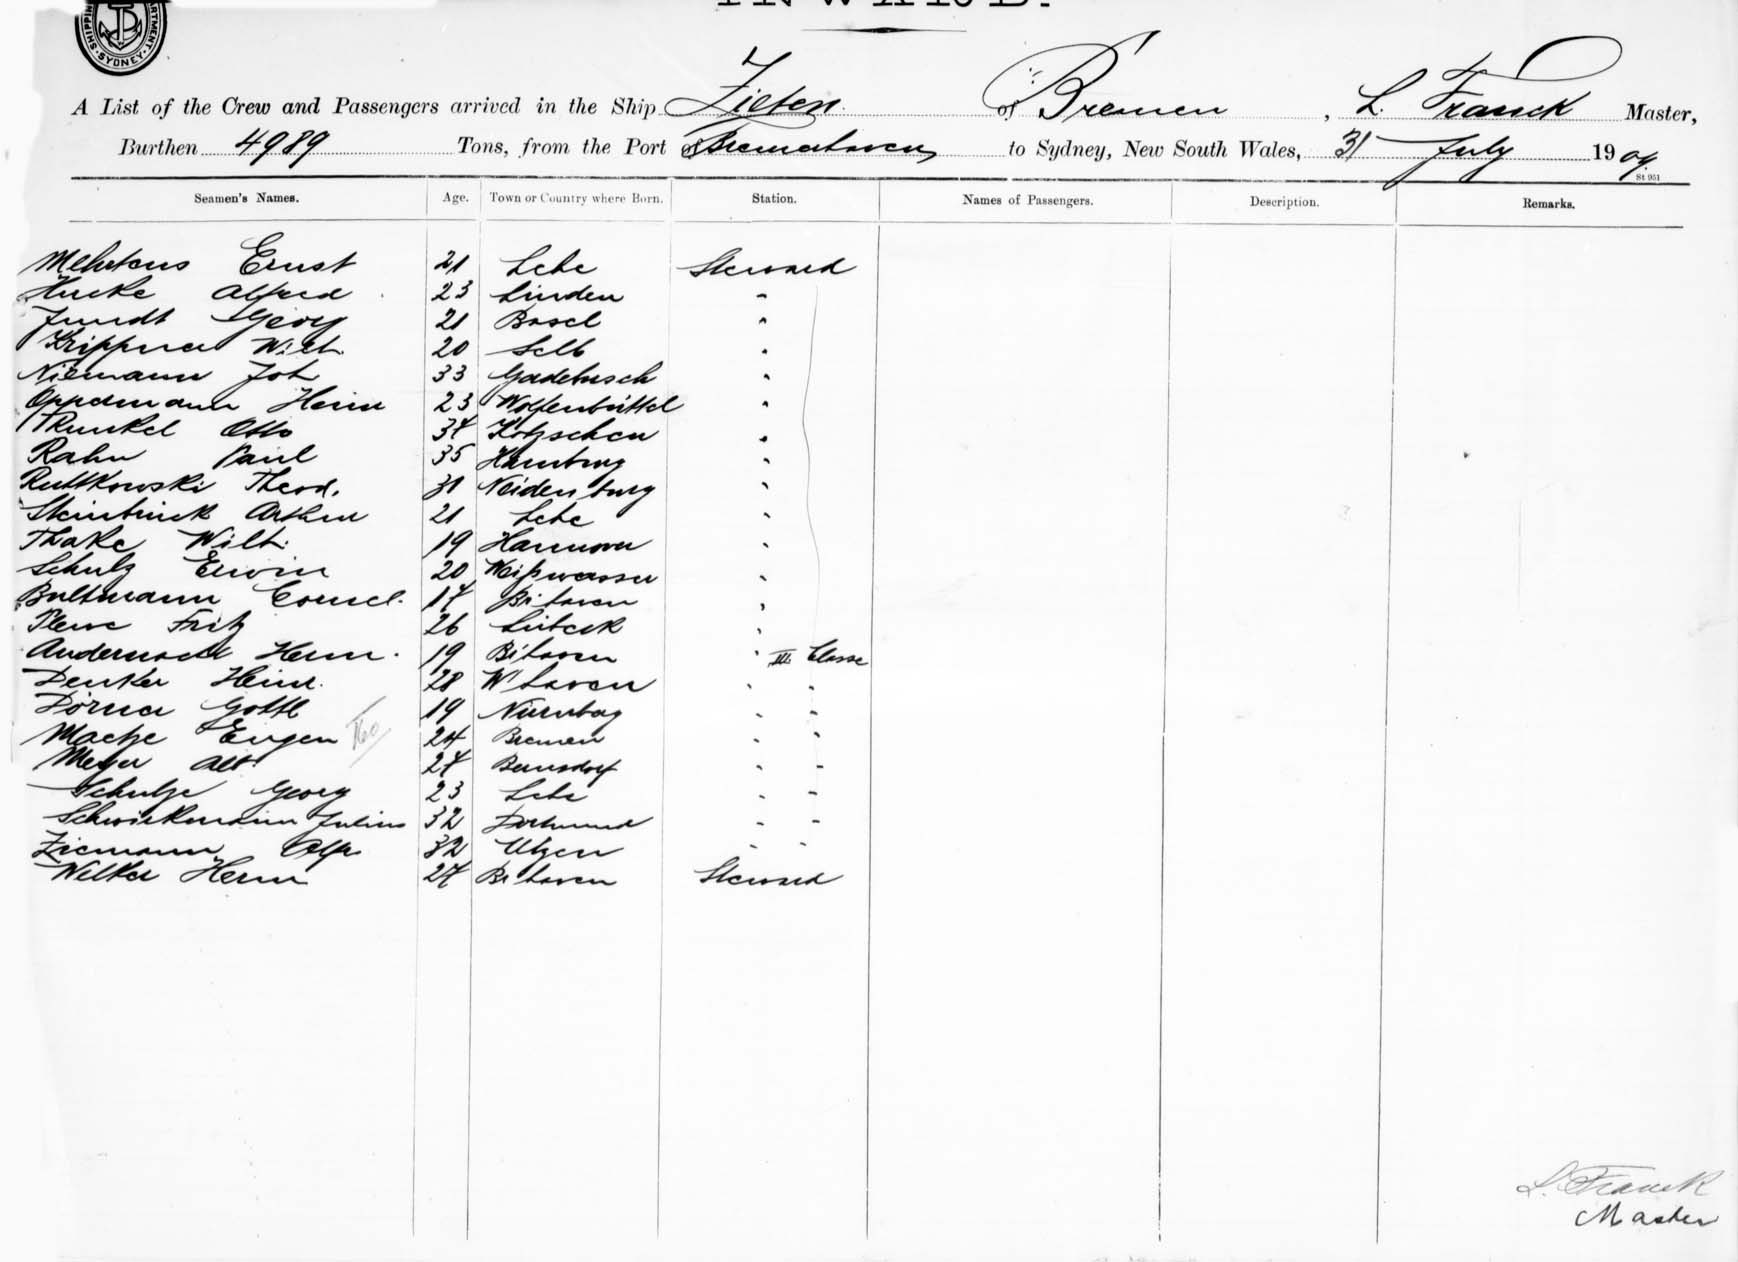 INWARD.
SYDNEY
A List of the Crew and Passengers arrived in the Ship Zieten of Bremen, L. Franck Master,
Burthen 4989 Tons, from the Port of Bremerhaven to Sydney, New South Wales, 31 July 1909.
St 951
Seamen's Names. Age. Town or Country where Born. Station. Names of Passengers. Description. Remarks.
Mehrtens Ernst 21 Lehe Steward
Hucke Alfred 23 Linden "
Jundt Georg 21 Basel "
Krippner Wilh. 20 Selb "
Niemann Joh 33 Gadebusch "
Oppermann Heinr 23 Wolfenbüttel "
Runkel Otto 34 Kötzschen "
Rahn Paul 35 Hamburg "
Ruttkowski Theod. 31 Neidenburg "
Steinbrink Arthur 21 Lehe "
Thake Wilh. 19 Hannover "
Schulz Erwin 20 Weißwasser "
Bultmann Cornel. 17 Br'haven "
Plewe Fritz 26 Lübeck "
Andernach Herm. 19 Br'haven " III Classe
Denker Heinr. 28 W'haven " "
Dörner Gottl 19 Nürnberg " "
Eugen 24 Bremen " "
Meyer Alb. 24 Bernsdorf " "
Schulze Georg 23 Lehe " "
Schwickmann Julius 32 Dortmund " "
Ziemann 32 Ulzen " "
Welker Herm 24 Br'haven Steward
L. Franck
Master